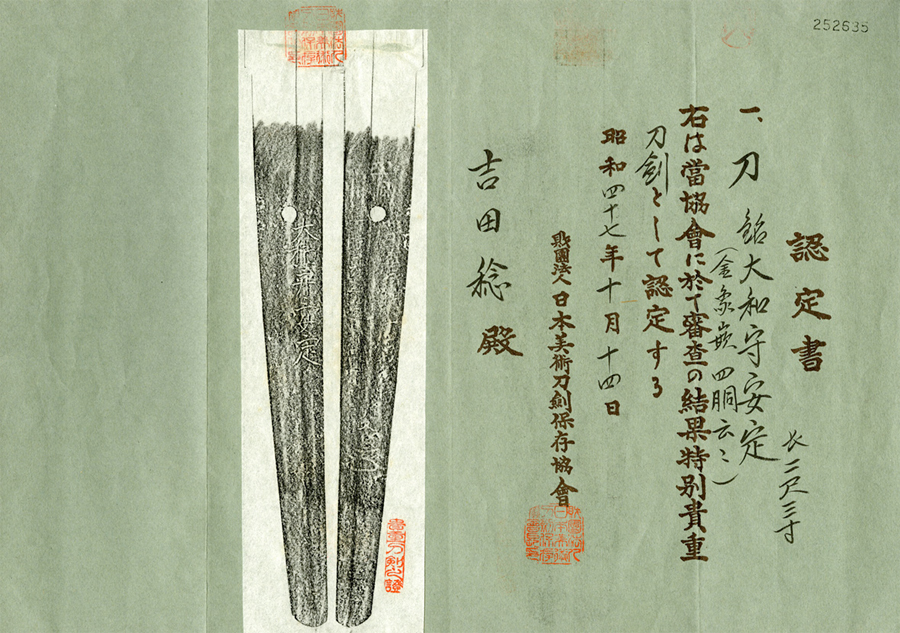 252635
認定書
一、刀 銘大和守安定 長二尺三寸
(金象嵌四胴云〻)
右は當協會に於て審査の結果特別貴重
刀劍として認定する
昭和四十七年十月十四日
財團法人日本美術刀劍保存協會
吉田稔殿
大和守安定
貴重刀剣之證